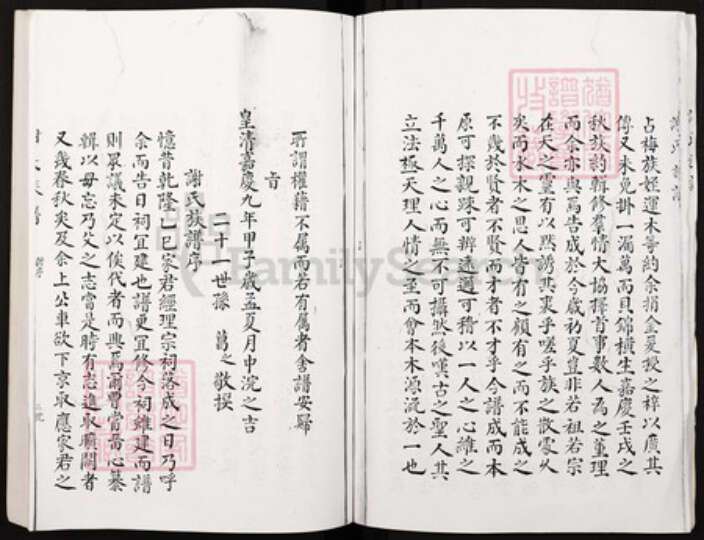 占梅族姪運木等約余捐金夏授之梓以廣其
傳又未免掛一漏萬而貝錦橫生嘉慶壬戌之
秋族約輯修羣情大協擇首事數人為之董理
而余亦與焉告成於今歲初夏豈非若祖若宗
在天之靈有以默誘其衷乎嗟乎族之散處久
矣而水木之思人皆有之顧有之而不能成之
不幾於賢者不賢而才者不才乎今譜成而本
原可探親疎可辨遠邇可稽以一人之心維之
千萬人之心而無不可攝然後嘆古之聖人其
立法極天理人情之至而會本木源流於一也
所謂權藉不屬而若有屬者舍譜安歸
旹
皇清嘉慶九年甲子歲孟夏月中浣之吉
二十一世孫 之敬撰
謝氏族譜序
憶昔乾隆辛巳家君經理宗祠落成之日乃呼
余而告曰祠宜建也譜更宜修今祠雖建而譜
則眾議未定以俟代者而與焉爾曹當善心纂
輯以毋忘乃父之志當是時有志進取闈者
又幾春秋矣及余上公車欲下京取應家君之
FamilySearch